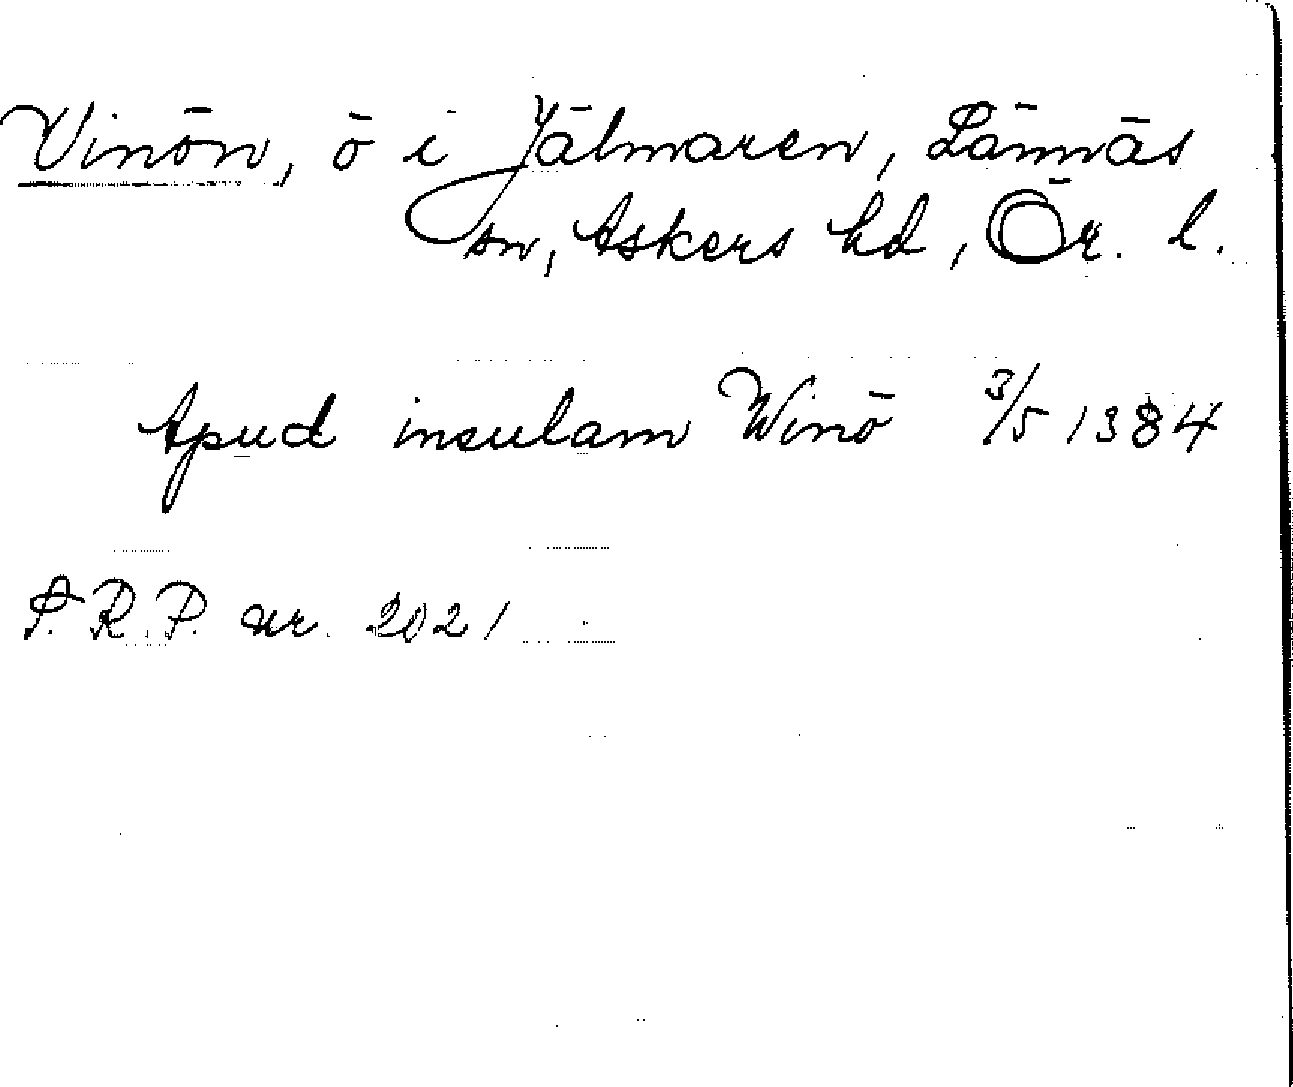 Vinön, ö i Jälmaren, Lännäs
sn, Askers hd, Ör. l.
Apud insulam Winö 3/5 1384
S.R.P. nr. 2021